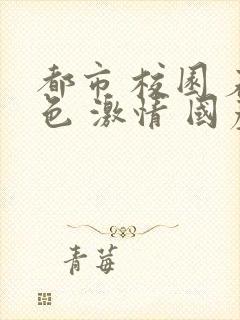 都市 校園
色 激情 國
青莓